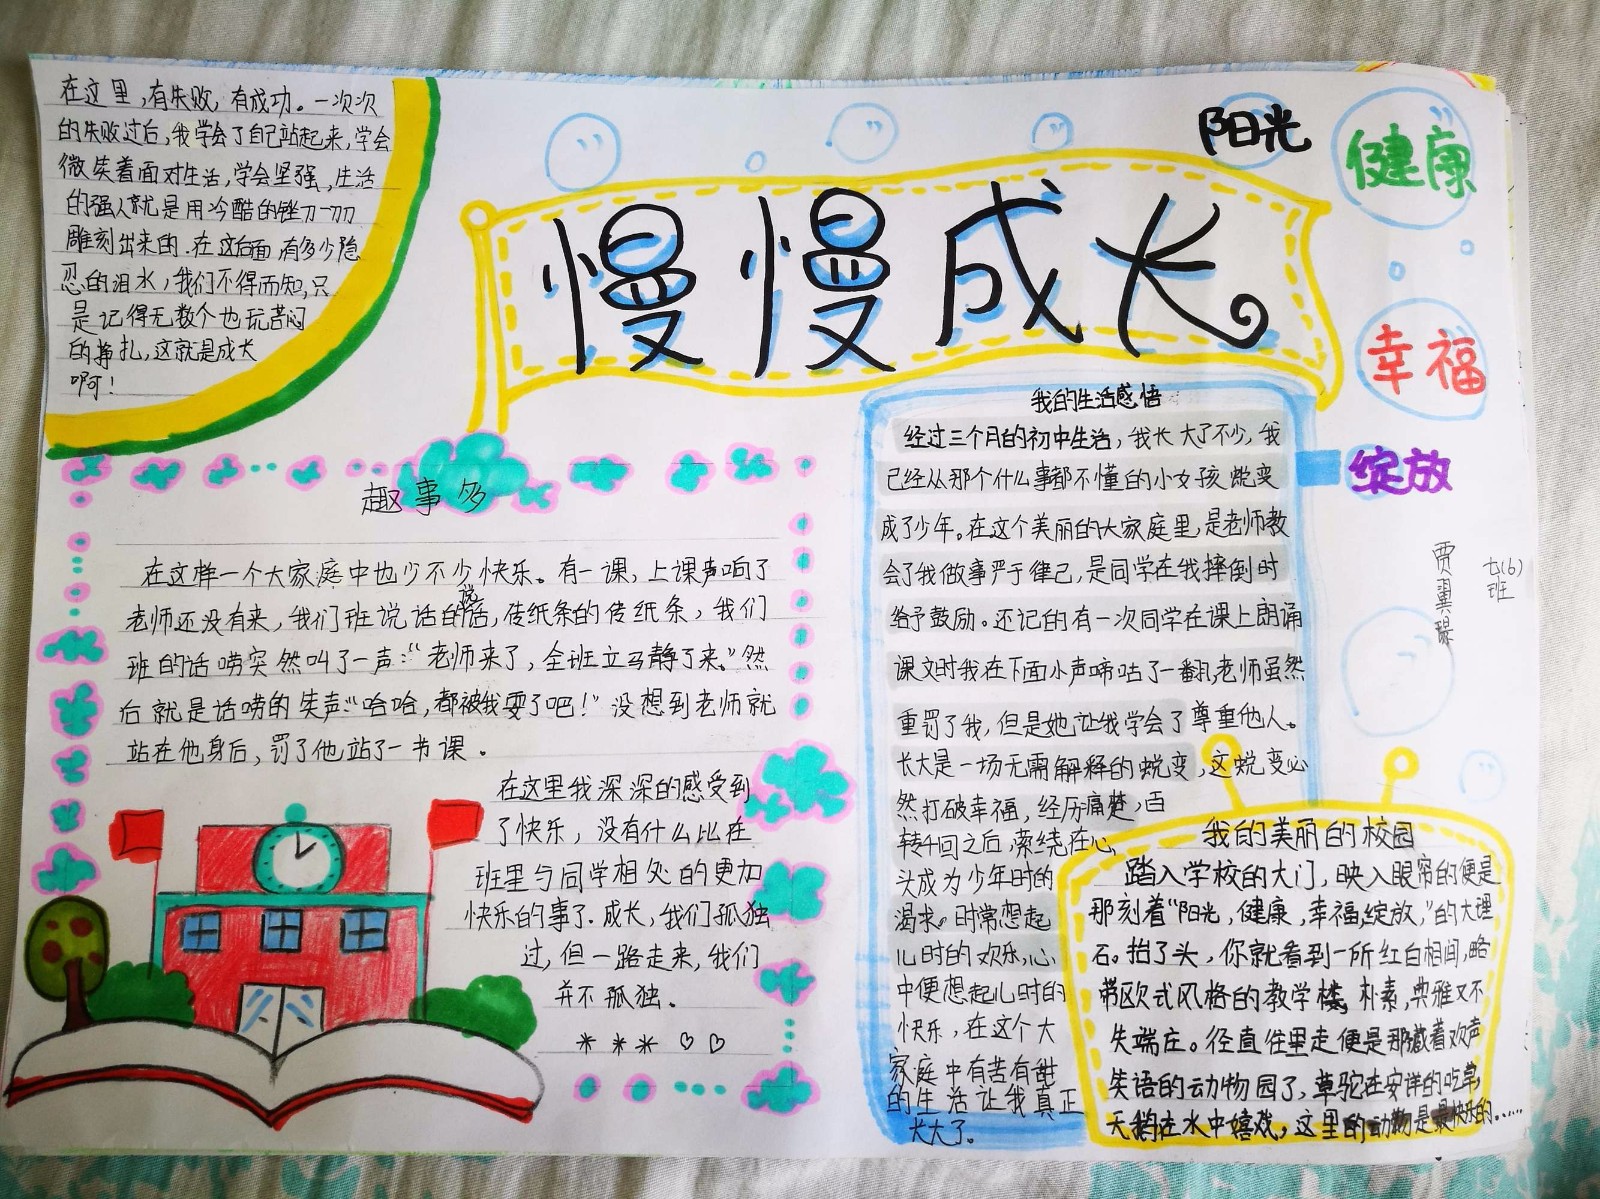 在这里,有失败,有成功。一次次
的失败过后,我学会了自己站起来,学会
微笑着面对生活,学会坚强,生活
的强人就是用冷酷的锉刀一刀刀
雕刻出来的.在这后面,有多少隐
忍的泪水,我们不得而知,只
是记得无数个也玩苦闷
的挣扎,这就是成长
啊!
慢慢成长
阳光
健康
幸福
绽放
贾翼
七(6)
班
趣事多
在这样一个大家庭中也少不少快乐。有一课,上课声响了
老师还没有来,我们班说话的说话,传纸条的传纸条,我们
班的话唠突然叫了一声:“老师来了,全班立马静了来。”然
后就是话唠的笑声“哈哈,都被我耍了吧!”没想到老师就
站在他身后,罚了他站了一书课。
在这里我深深的感受到
了快乐,没有什么比在
班里与同学相处的更加
快乐的事了.成长,我们孤独
过,但一路走来,我们
并不孤独。
***♡♡
我的生活感悟
经过三个月的初中生活,我长大了不少,我
己经从那个什么事都不懂的小女孩蜕变
成了少年。在这个美丽的大家庭里,是老师教
会了我做事严于律己,是同学在我摔倒时
给予鼓励。还记的有一次同学在课上朗诵
课文时我在下面小声嘀咕了一番,老师虽然
重罚了我,但是她让我学会了尊重他人。
长大是一场无需解释的蜕变,这蜕变必
然打破幸福,经历痛楚,百
转千回之后,萦绕在心
头成为少年时的
渴求。时常想起
儿时的欢乐,心
中便想起儿时的
快乐,在这个大
家庭中有苦有甜
的生活让我真正
长大了。
我的美丽的校园
踏入学校的大门,映入眼帘的便是
那刻着“阳光,健康,幸福,绽放,”的大理
石。抬了头,你就看到一所红白相间,略
带欧式风格的教学楼,朴素,典雅又不
失端庄。径直往里走便是那藏着欢声
笑语的动物园了,草驼在安详的吃草,
天鹅在水中嬉戏,这里的动物是最快乐的……